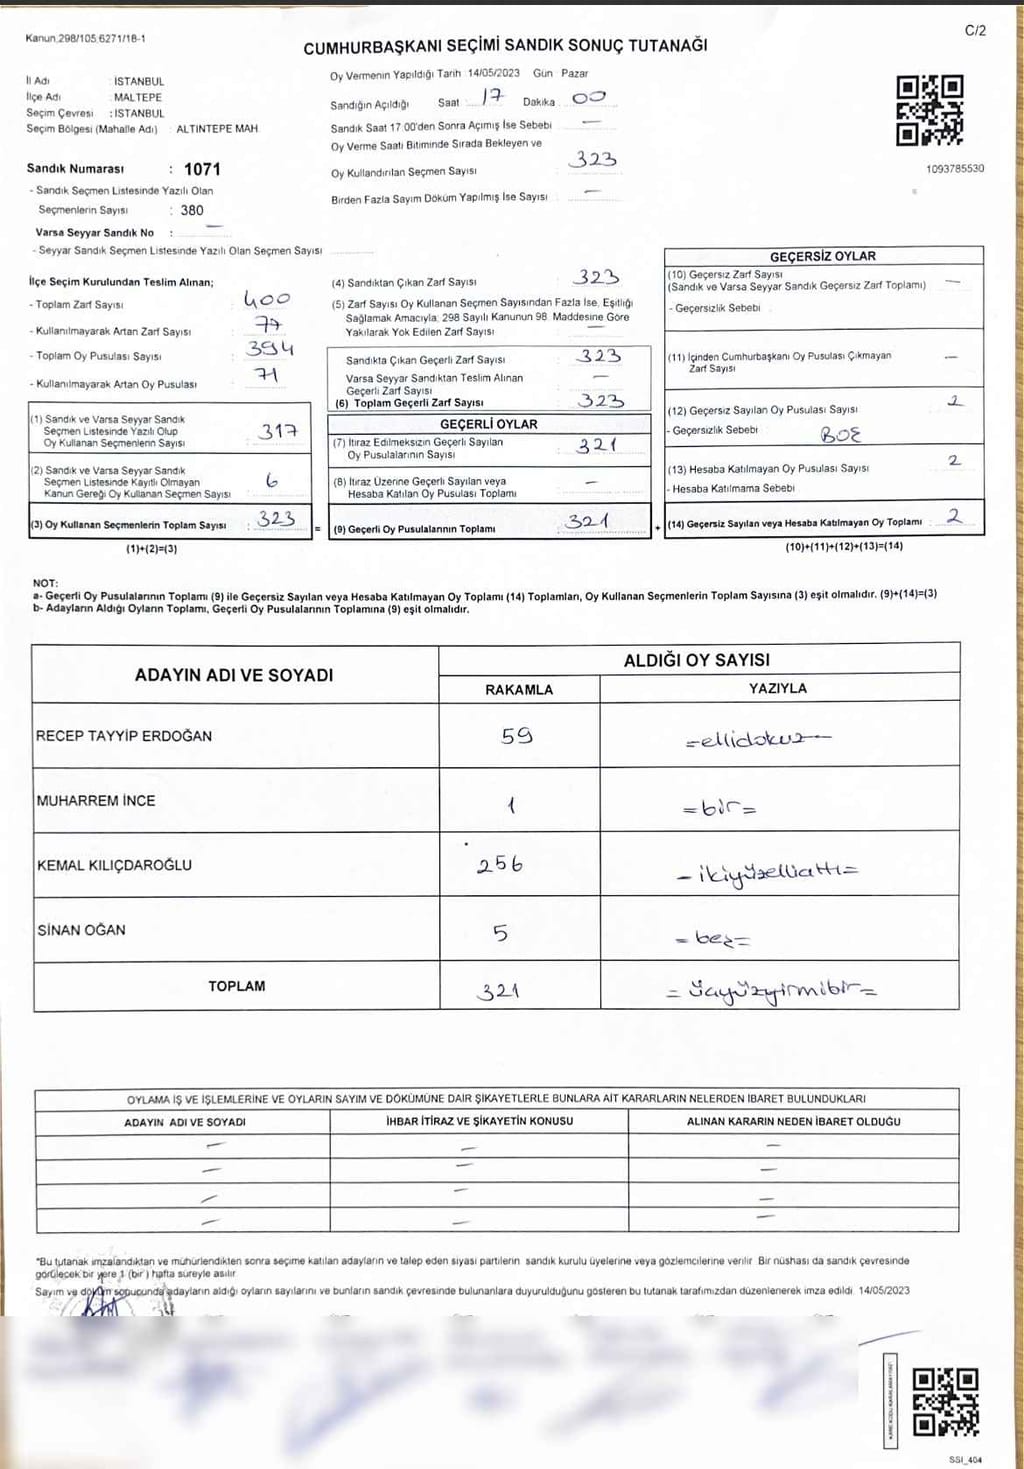 Kanun 298/105 6271/18-1
C/2
CUMHURBAŞKANI SEÇİMİ SANDIK SONUÇ TUTANAĞI
İl Adı : İSTANBUL
İlçe Adı : MALTEPE
Seçim Çevresi : İSTANBUL
Seçim Bölgesi (Mahalle Adı) : ALTINTEPE MAH.
Sandık Numarası : 1071
- Sandık Seçmen Listesinde Yazılı Olan
Seçmenlerin Sayısı : 380
Varsa Seyyar Sandık No : —
- Seyyar Sandık Seçmen Listesinde Yazılı Olan Seçmen Sayısı
Oy Vermenin Yapıldığı Tarih :14/05/2023 Gün Pazar
Sandığın Açıldığı Saat 17 Dakika 00
Sandık Saat 17:00'den Sonra Açılmış İse Sebebi —
Oy Verme Saati Bitiminde Sırada Bekleyen ve
Oy Kullandırılan Seçmen Sayısı 323
Birden Fazla Sayım Döküm Yapılmış İse Sayısı —
1093785530
İlçe Seçim Kurulundan Teslim Alınan;
- Toplam Zarf Sayısı : 400
- Kullanılmayarak Artan Zarf Sayısı : 77
- Toplam Oy Pusulası Sayısı : 394
- Kullanılmayarak Artan Oy Pusulası : 71
(1) Sandık ve Varsa Seyyar Sandık
Seçmen Listesinde Yazılı Olup
Oy Kullanan Seçmenlerin Sayısı : 317
(2) Sandık ve Varsa Seyyar Sandık
Seçmen Listesinde Kayıtlı Olmayan
Kanun Gereği Oy Kullanan Seçmen Sayısı : 6
(3) Oy Kullanan Seçmenlerin Toplam Sayısı : 323
(1)+(2)=(3)
(4) Sandıktan Çıkan Zarf Sayısı : 323
(5) Zarf Sayısı Oy Kullanan Seçmen Sayısından Fazla İse, Eşitliği
Sağlamak Amacıyla; 298 Sayılı Kanunun 98. Maddesine Göre
Yakılarak Yok Edilen Zarf Sayısı —
Sandıkta Çıkan Geçerli Zarf Sayısı : 323
Varsa Seyyar Sandıktan Teslim Alınan
Geçerli Zarf Sayısı —
(6) Toplam Geçerli Zarf Sayısı : 323
GEÇERLİ OYLAR
(7) İtiraz Edilmeksizin Geçerli Sayılan
Oy Pusulalarının Sayısı : 321
(8) İtiraz Üzerine Geçerli Sayılan veya
Hesaba Katılan Oy Pusulası Toplamı : —
= (9) Geçerli Oy Pusulalarının Toplamı : 321
GEÇERSİZ OYLAR
(10) Geçersiz Zarf Sayısı
(Sandık ve Varsa Seyyar Sandık Geçersiz Zarf Toplamı) : —
- Geçersizlik Sebebi :
(11) İçinden Cumhurbaşkanı Oy Pusulası Çıkmayan
Zarf Sayısı : —
(12) Geçersiz Sayılan Oy Pusulası Sayısı : 2
- Geçersizlik Sebebi :
(13) Hesaba Katılmayan Oy Pusulası Sayısı : 2
- Hesaba Katılmama Sebebi :
+ (14) Geçersiz Sayılan veya Hesaba Katılmayan Oy Toplamı : 2
(10)+(11)+(12)+(13)=(14)
NOT:
a- Geçerli Oy Pusulalarının Toplamı (9) ile Geçersiz Sayılan veya Hesaba Katılmayan Oy Toplamı (14) Toplamları, Oy Kullanan Seçmenlerin Toplam Sayısına (3) eşit olmalıdır. (9)+(14)=(3)
b- Adayların Aldığı Oyların Toplamı, Geçerli Oy Pusulalarının Toplamına (9) eşit olmalıdır.
ADAYIN ADI VE SOYADI
ALDIĞI OY SAYISI
RAKAMLA YAZIYLA
RECEP TAYYİP ERDOĞAN 59 =ellidokuz=
MUHARREM İNCE 1 =bir=
KEMAL KILIÇDAROĞLU 256 =ikiyüzellialtı=
SİNAN OĞAN 5 =beş=
TOPLAM 321 =üçyüzyirmibir=
OYLAMA İŞ VE İŞLEMLERİNE VE OYLARIN SAYIM VE DÖKÜMÜNE DAİR ŞİKAYETLERLE BUNLARA AİT KARARLARIN NELERDEN İBARET BULUNDUKLARI
ADAYIN ADI VE SOYADI İHBAR İTİRAZ VE ŞİKAYETİN KONUSU ALINAN KARARIN NEDEN İBARET OLDUĞU
— — —
— — —
— — —
— — —
*Bu tutanak imzalandıktan ve mühürlendikten sonra seçime katılan adayların ve talep eden siyasi partilerin sandık kurulu üyelerine veya gözlemcilerine verilir. Bir nüshası da sandık çevresinde
görülecek bir yere 1 (bir) hafta süreyle asılır.
Sayım ve döküm sonucunda adayların aldığı oyların sayılarını ve bunların sandık çevresinde bulunanlara duyurulduğunu gösteren bu tutanak tarafımızdan düzenlenerek imza edildi. 14/05/2023
SSI_404